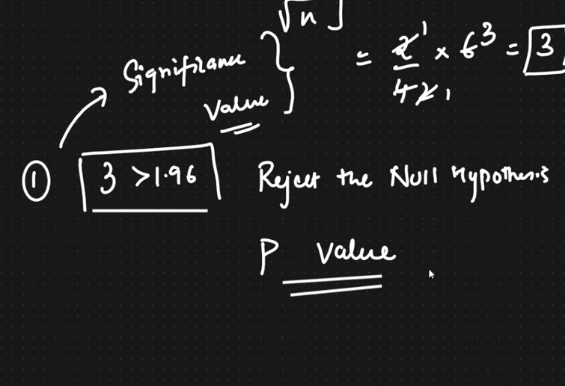 √n
Significance
Value
= 2̶ ¹ / 4 2̶ ₁ × 6̶ ³ = 3
① 3 > 1.96 Reject the Null Hypothesis
P Value